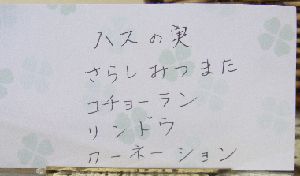 ハスの実
さらしみつまた
コチョーラン
リンドウ
カーネーション